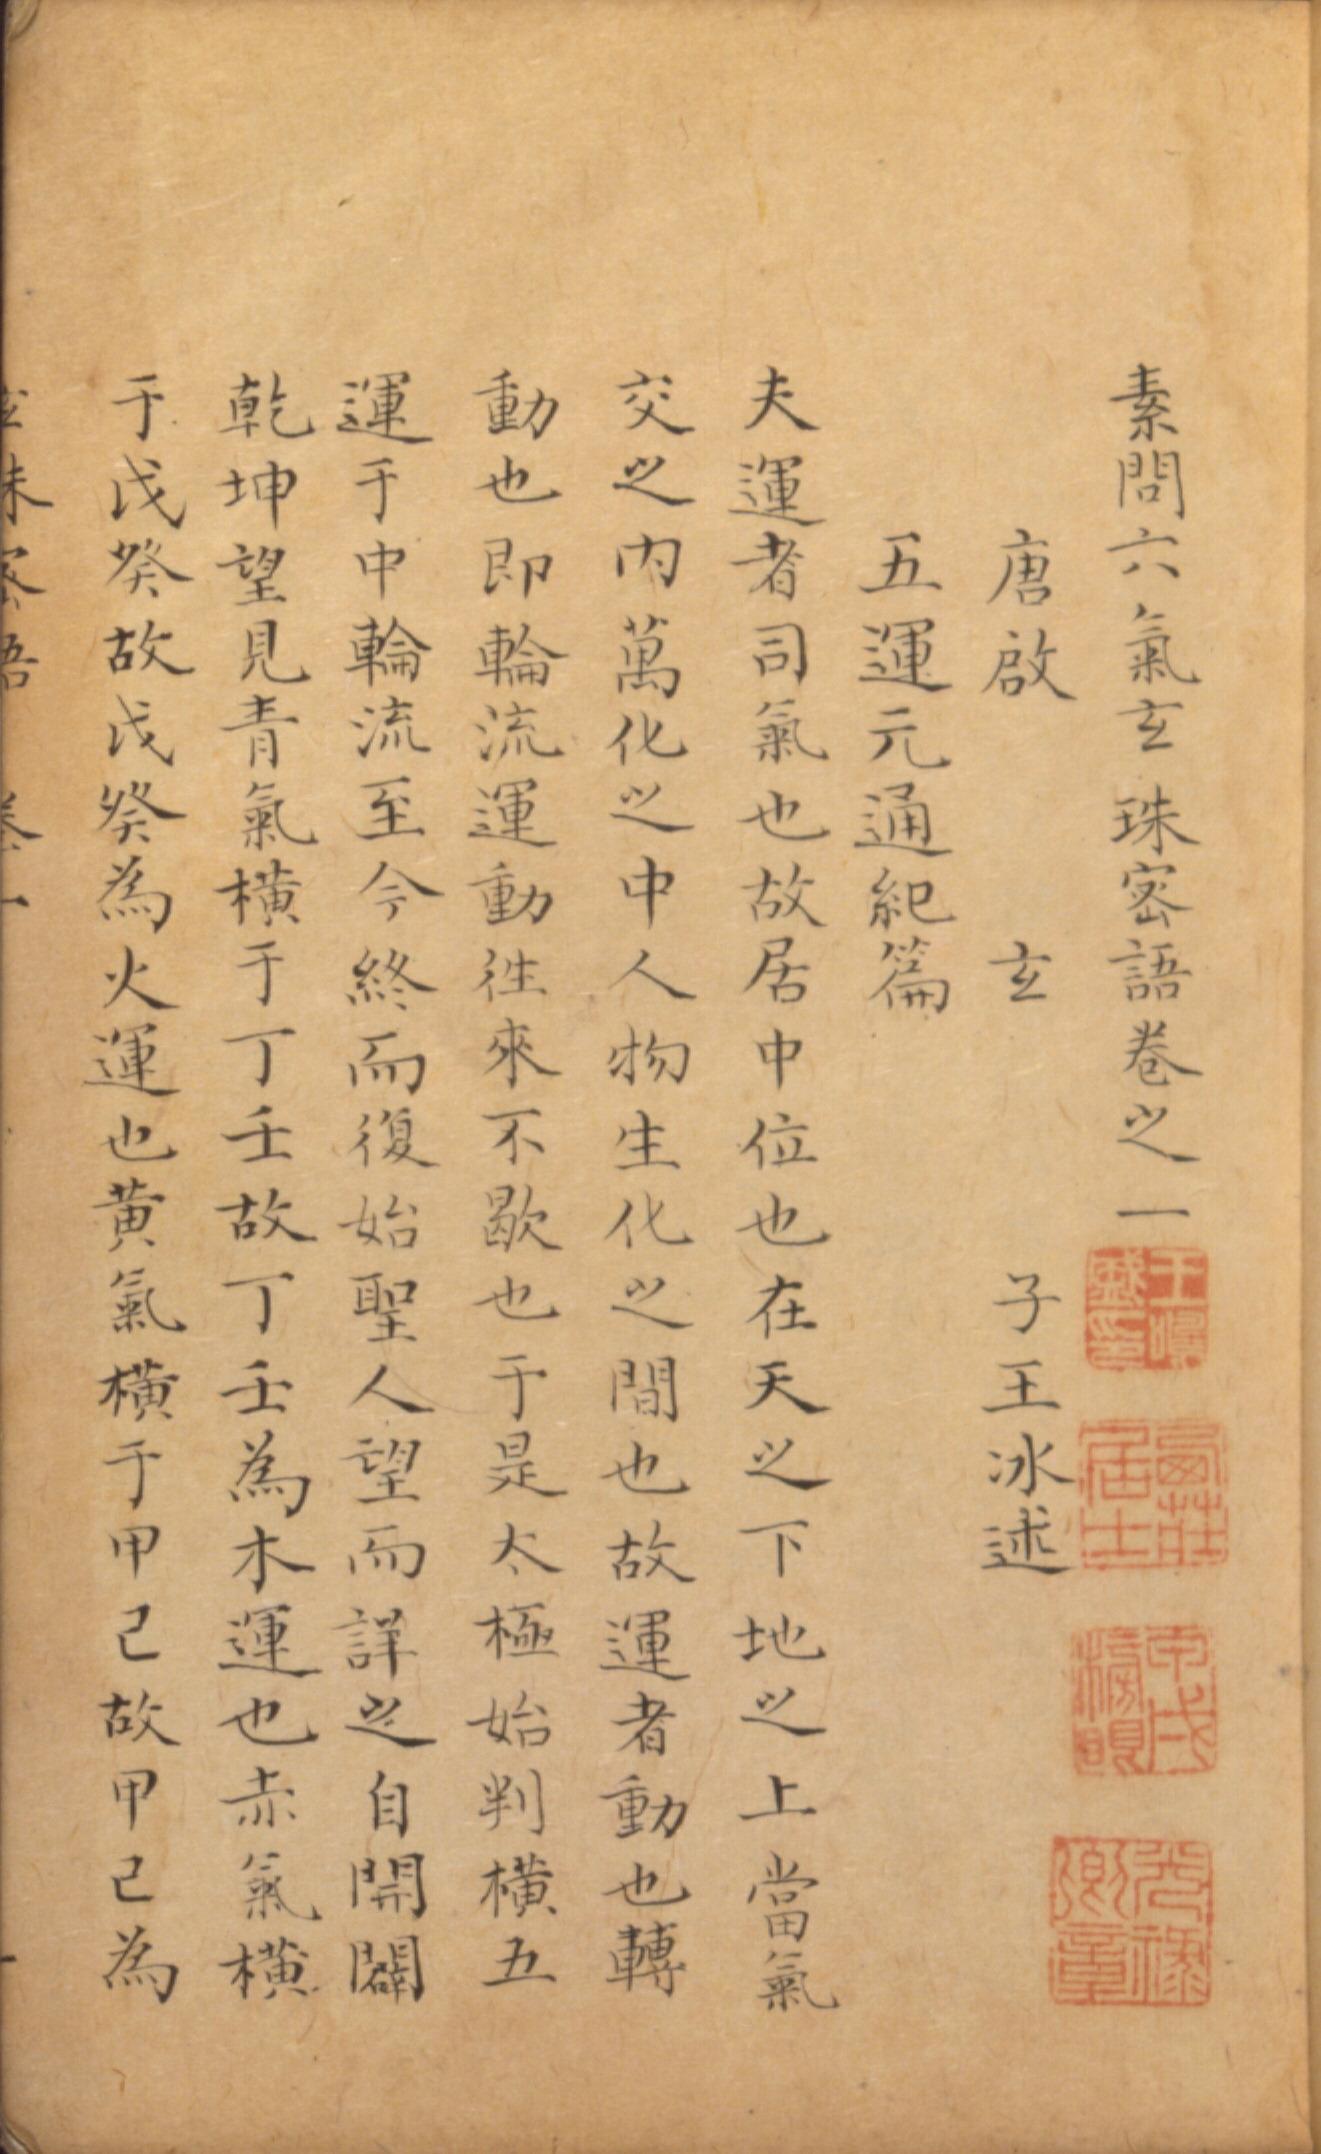 素問六氣玄珠密語卷之一
唐啟玄子王冰述
五運元通紀篇
夫運者司氣也故居中位也在天之下地之上當氣
交之内萬化之中人物生化之間也故運者動也轉
動也即輪流運動徃來不歇也于是太極始判橫五
運于中輪流至今終而復始聖人望而詳之自開闢
乾坤望見青氣橫于丁壬故丁壬為木運也赤氣橫
于戊癸故戊癸為火運也黄氣橫于甲己故甲己為
玄珠密語 卷一 一
甲戌
居士